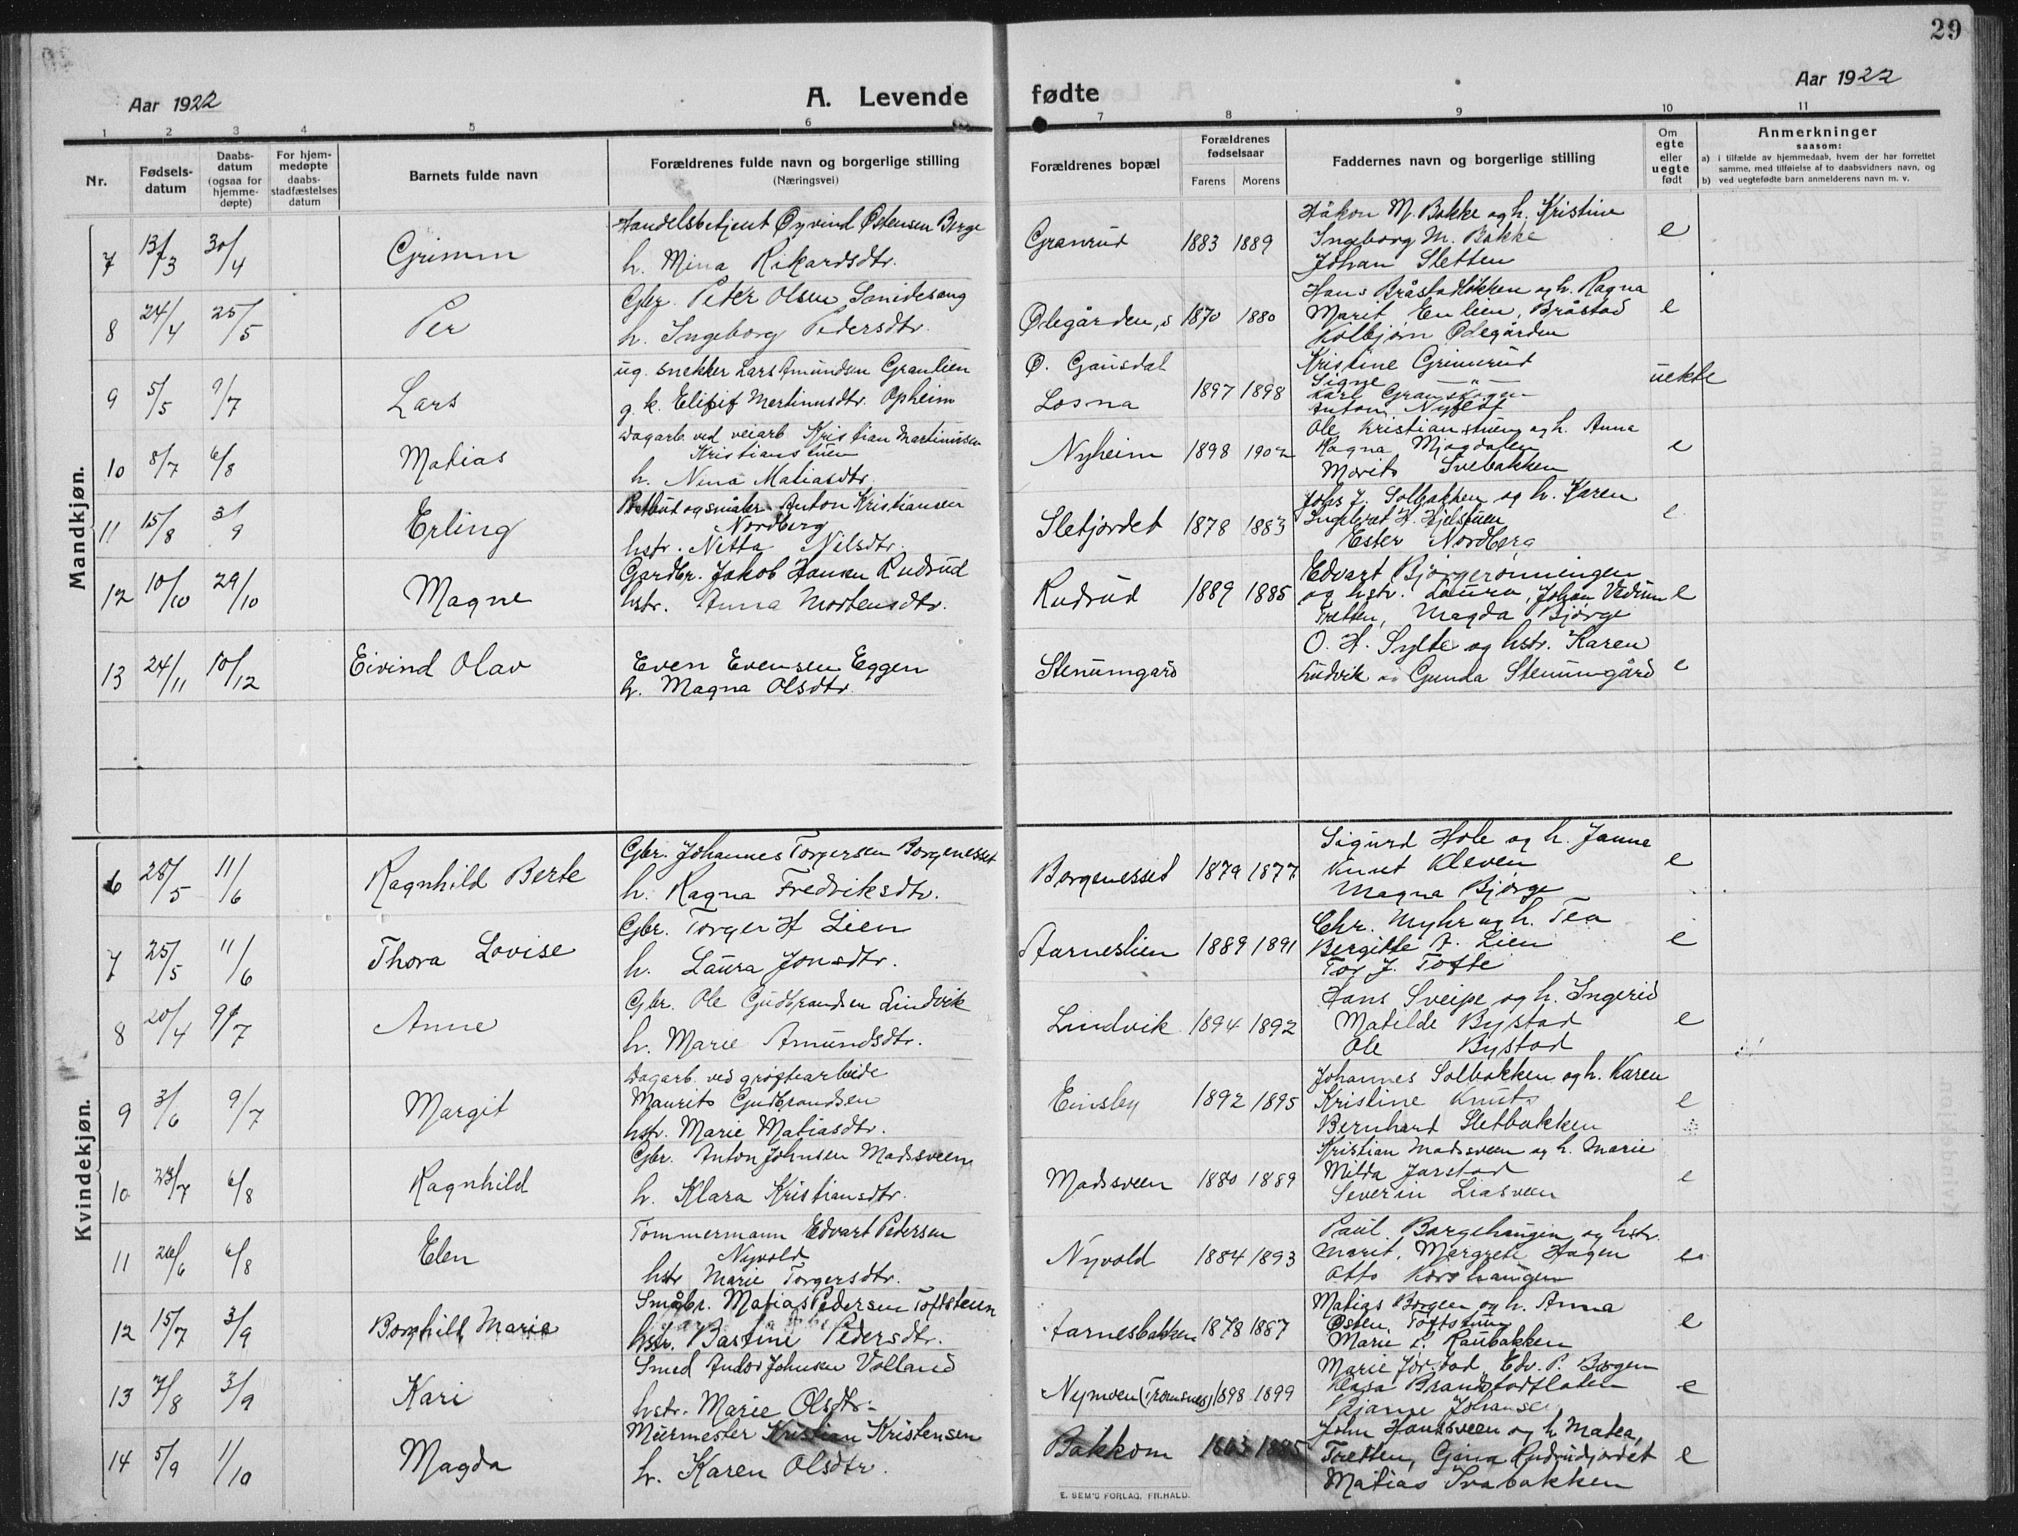 29
Aar 1922
A. Levende fødte
Aar 1922
1 2 3 4 5 6 7 8 9 10 11
Nr.
Fødsels-
datum
Daabs-
datum
(ogsaa for
hjemme-
døpte)
For hjem-
medøpte
daabs-
stadfæstelses
datum
Barnets fulde navn
Forældrenes fulde navn og borgerlige stilling
(Næringsvei)
Forældrenes bopæl
Forældrenes
fødselsaar
Farens Morens
Faddernes navn og borgerlige stilling
Om
egte
eller
uegte
født
Anmerkninger
saasom:
a) i tilfælde av hjemmedaab, hvem der har forrettet
samme, med tilføielse af to daabsvidners navn, og
b) ved uegtefødte barn anmelderens navn m. v.
Mandkjøn.
7 13/3 30/4 Grimm
Handelsbetjent Øyvind Østensen Berge
h. Mina Rikardsdtr.
Granrud 1883 1889
Håkon M. Bakke og h. Kristine
Ingeborg M. Bakke
Johan Sletten
e
8 24/4 25/5 Per
Gbr. Peter Olsen Smidesang
h. Ingeborg Pedersdtr.
Ødegården, s 1870 1880
Hans Bråstadløkken og h. Ragna
Marit Enlien, Bråstad
Kolbjørn Ødegården
e
9 5/5 9/7 Lars
ug. snekker Lars Amundsen Granlien
g. k. Elisif Martinusdtr. Opheim
Ø. Gausdal
Losna 1897 1898
Kristine Grimerud
Signe — " —
Karl Granskogen
Anton Nyfldt
uekte
10 8/7 6/8 Matias
Dagarb. ved veiarb. Kristian Martinusen
Kristianstuen
h. Nina Matiasdtr.
Nyheim 1898 1902
Ole Kristianstuen og h. Anna
Ragna Mjøgdalen
Morits Svebakken
e
11 15/8 3/9 Erling
Anton Kristiansen
Nordberg
hstr. Netta Nilsdtr.
Sletjordet 1878 1883
Johs J. Solbakken og h. Karen
Ingebret H. Hjelstuen
Ester Nordberg
e
12 10/10 29/10 Magne
Gardbr. Jakob Hansen Rudrud
hstr. Anna Mortensdtr.
Rudrud 1889 1885
Edvart Bjørgerønningen
og hstr. Laura, Johan Vedum
Tretten, Magda Bjørge
e
13 24/11 10/12 Eivind Olav
Even Evensen Eggen
h. Magna Olsdtr.
Stenumgard
O. H. Sylte og hstr. Karen
Ludvik og Gunda Stenumgård
e
Kvindekjøn.
6 28/5 11/6 Ragnhild Berte
Gbr. Johannes Torgersen Borgenesset
h. Ragna Fredriksdtr.
Borgenesset 1879 1877
Sigurd Hole og h. Janna
Knut Kleven
Magna Bjørge
e
7 25/5 11/6 Thora Lovise
Gbr. Torger H Lien
h. Laura Jonsdtr.
Aarneslien 1889 1891
Chr. Myhr og h. Tea
Bergitte A. Lien
Tor J. Tofte
e
8 20/4 9/7 Anne
Gbr. Ole Gudbrandsen Lindvik
h. Marie Amundsdtr.
Lindvik 1894 1892
Hans Sveipe og h. Ingerid
Matilde Bystad
Ole Bystad
e
9 3/6 9/7 Margit
Dagarb. ved grøftearbeide
Maurits Gudbrandsen
hstr. Marie Matiasdtr.
Einsby 1892 1895
Johannes Solbakken og h. Karen
Kristine Knuts
Bernhard Sletbakken
e
10 23/7 6/8 Ragnhild
Gbr. Anton Johnsen Madsveen
h. Klara Kristiansdtr.
Madsveen 1880 1889
Kristian Madsveen og h. Marie
Milda Jarstad
Severin Liasveen
e
11 26/6 6/8 Elen
Tømmermann Edvart Petersen
Nyvold
hstr Marie Torgersdtr.
Nyvold 1884 1893
Paul Borgehaugen og hstr.
Marit, Mergrete Hagen
Otto Korshaugen
e
12 15/7 3/9 Borghild Marie
Småbr. Matias Pedersen Toftstuen
hstr. Bastine Pedersdtr.
Aarnesbakken 1878 1887
Matias Borgen og h. Anna
Østen Toftstuen
Marie L. Raubakken
e
13 7/8 3/9 Kari
Smed Andor Johnsen Volland
hstr. Marie Olsdtr.
Nymoen (Tromsnes) 1898 1899
Marie Jørstad, Edv. P. Borgen
Klara Brandstadflaten
Bjarne Johansen
e
14 5/9 1/10 Magda
Murmester Kristian Kristensen
h. Karen Olsdtr.
Bakkom 1885
John Hansveen og h. Matea,
Tretten, Gina Rudrudjordet
Matias Svebakken
e
E. SEM'S FORLAG, FR.HALD.